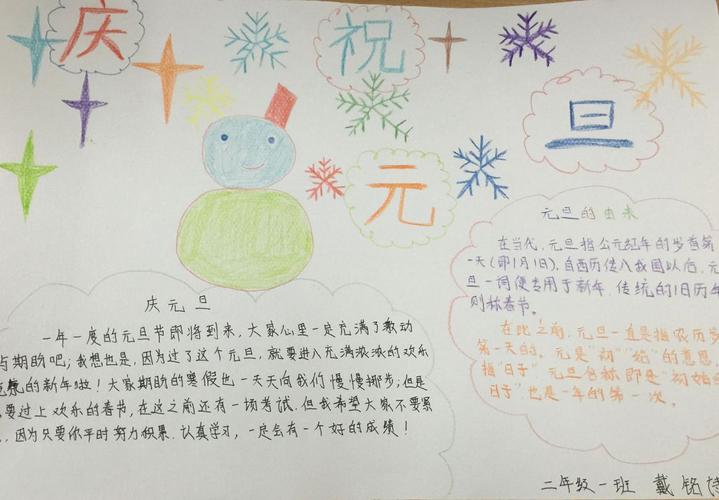 庆祝元旦
庆元旦
一年一度的元旦节即将到来，大家心里一定充满了激动
与期盼吧；我想也是，因为过了这个元旦，就要进入充满浓浓的欢乐
的新年啦！大家期盼的寒假也一天天向我们慢慢挪步；但是
要过上欢乐的春节，在这之前还有一场考试，但我希望大家不要紧
，因为只要你平时努力积累，认真学习，一定会有一个好的成绩！
元旦的由来
在当代，元旦指公元纪年的岁首第
一天（即1月1日），自西历传入我国以后，元
旦一词便专用于新年，传统的1日历年
则称春节。
在此之前，元旦一直是指农历岁
第一天的。元是"初""始"的意思，
指"日子"元旦合称即是"初始的
日子"也是一年的第一次。
二年级一班 戴铭